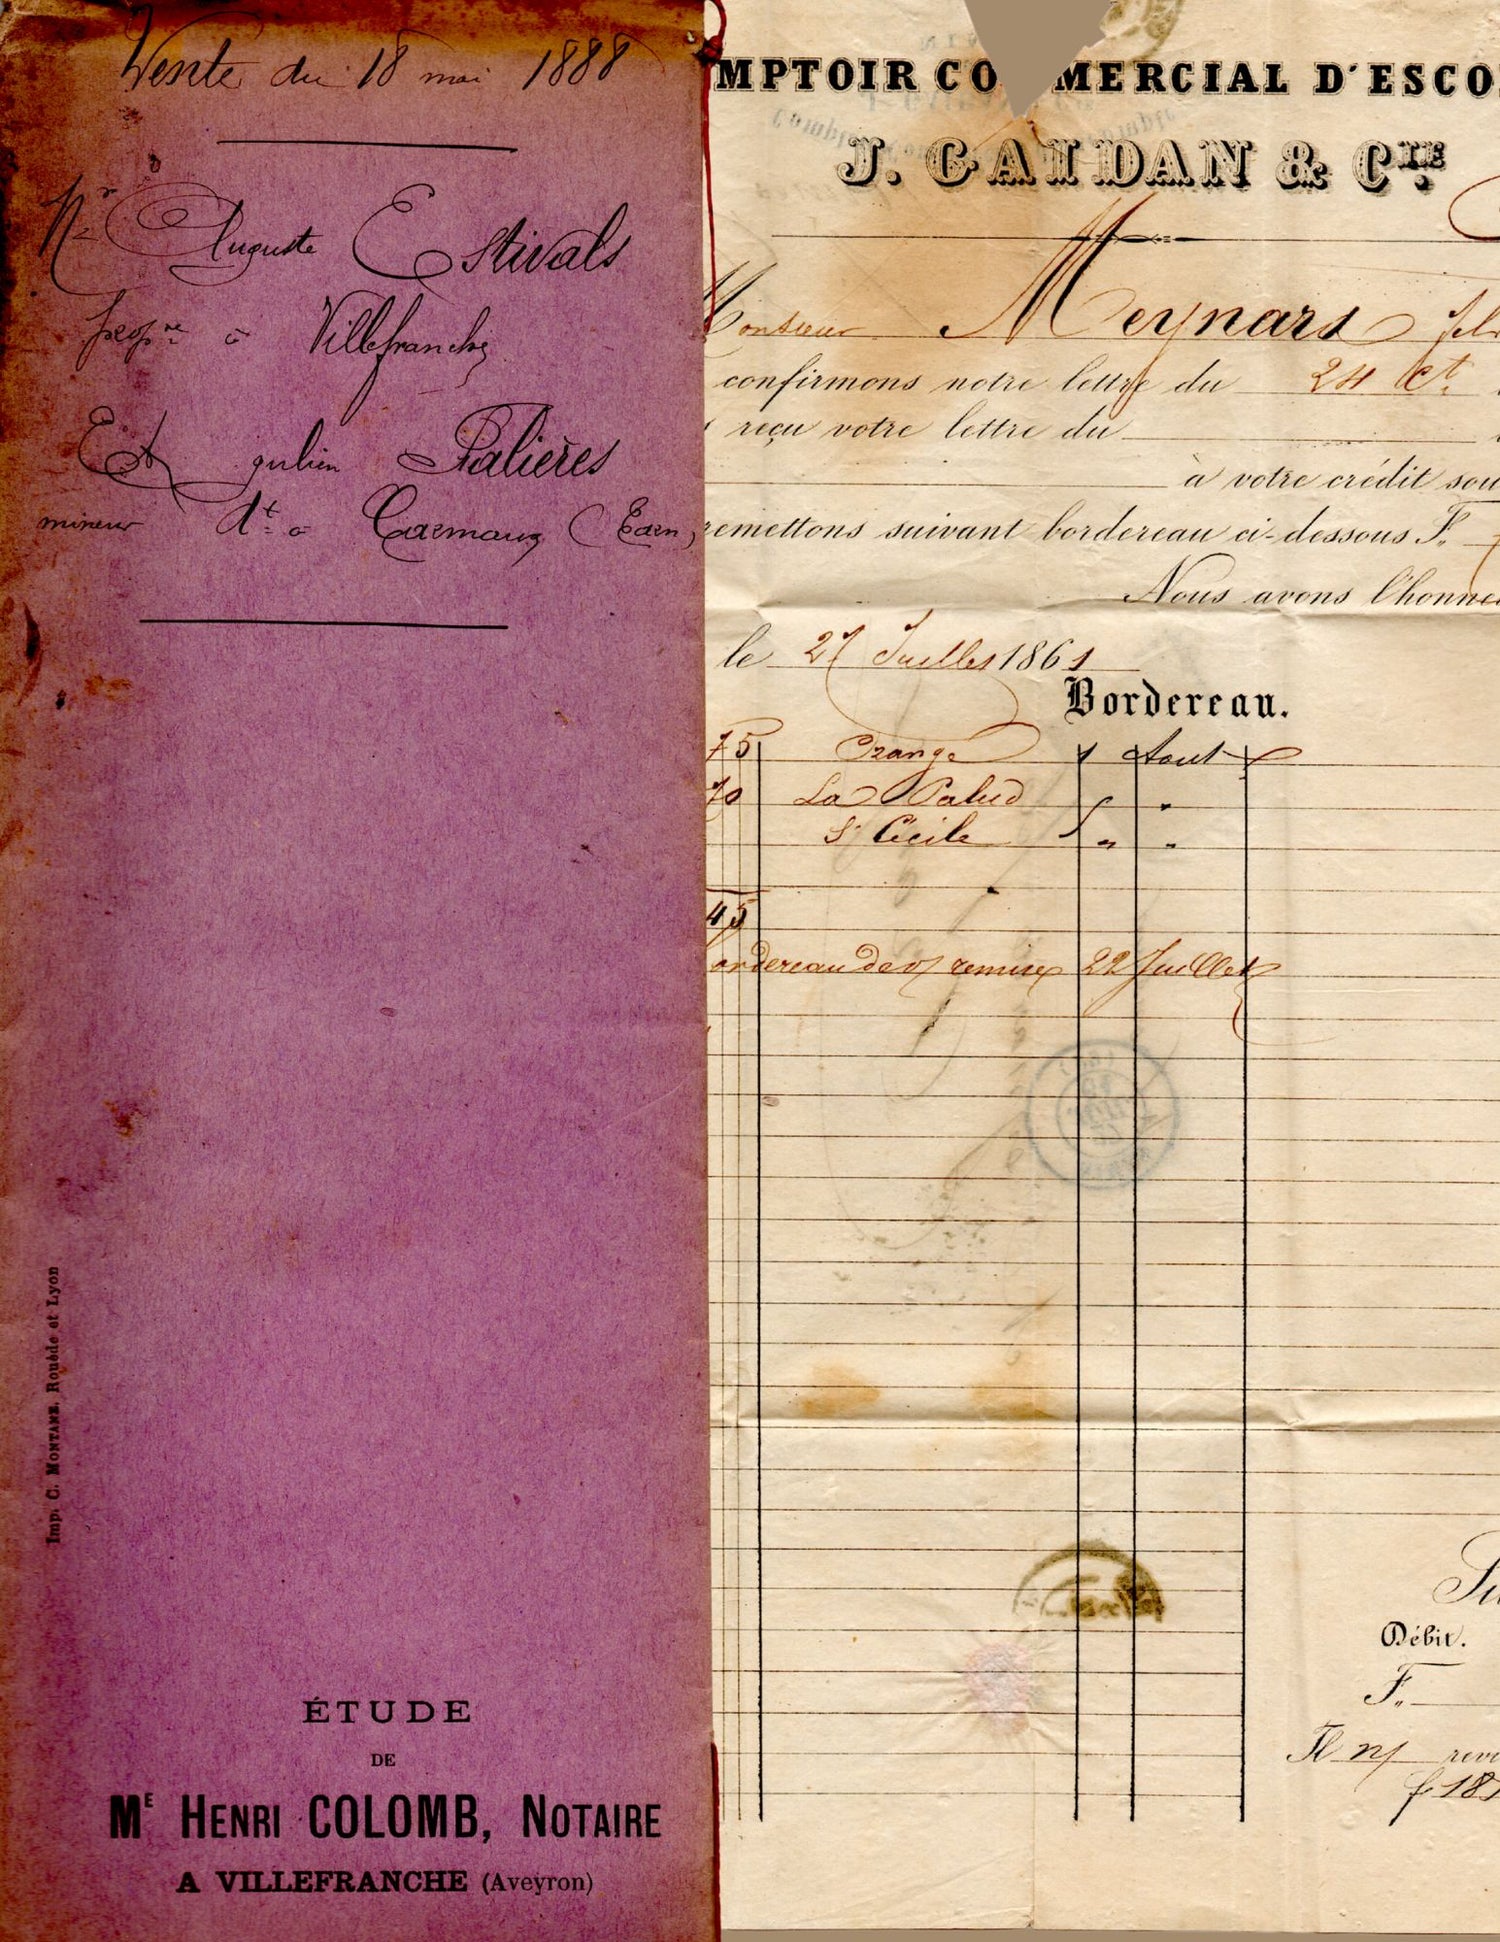 Vente du 18 mai 1888
Mr Auguste Estivals
propre à Villefranche
Et Julien Palières
mineur dt à Carmaux (Tarn)
Imp. C. MONTANE, Rouède et Lyon
ÉTUDE
DE
ME HENRI COLOMB, NOTAIRE
A VILLEFRANCHE (Aveyron)
MPTOIR CO MERCIAL D'ESCO
J. GAIDAN & CIE
Monsieur Meynard
confirmons notre lettre du 24 ct
reçu votre lettre du
à votre crédit sou
remettons suivant bordereau ci-dessous F.
Nous avons l'honne
le 27 Juillet 1861
Bordereau.
75 Orange Aout
70 La Palud "
St Cécile " "
45
ordereau de n/ remise 22 Juillet
Débit.
F.